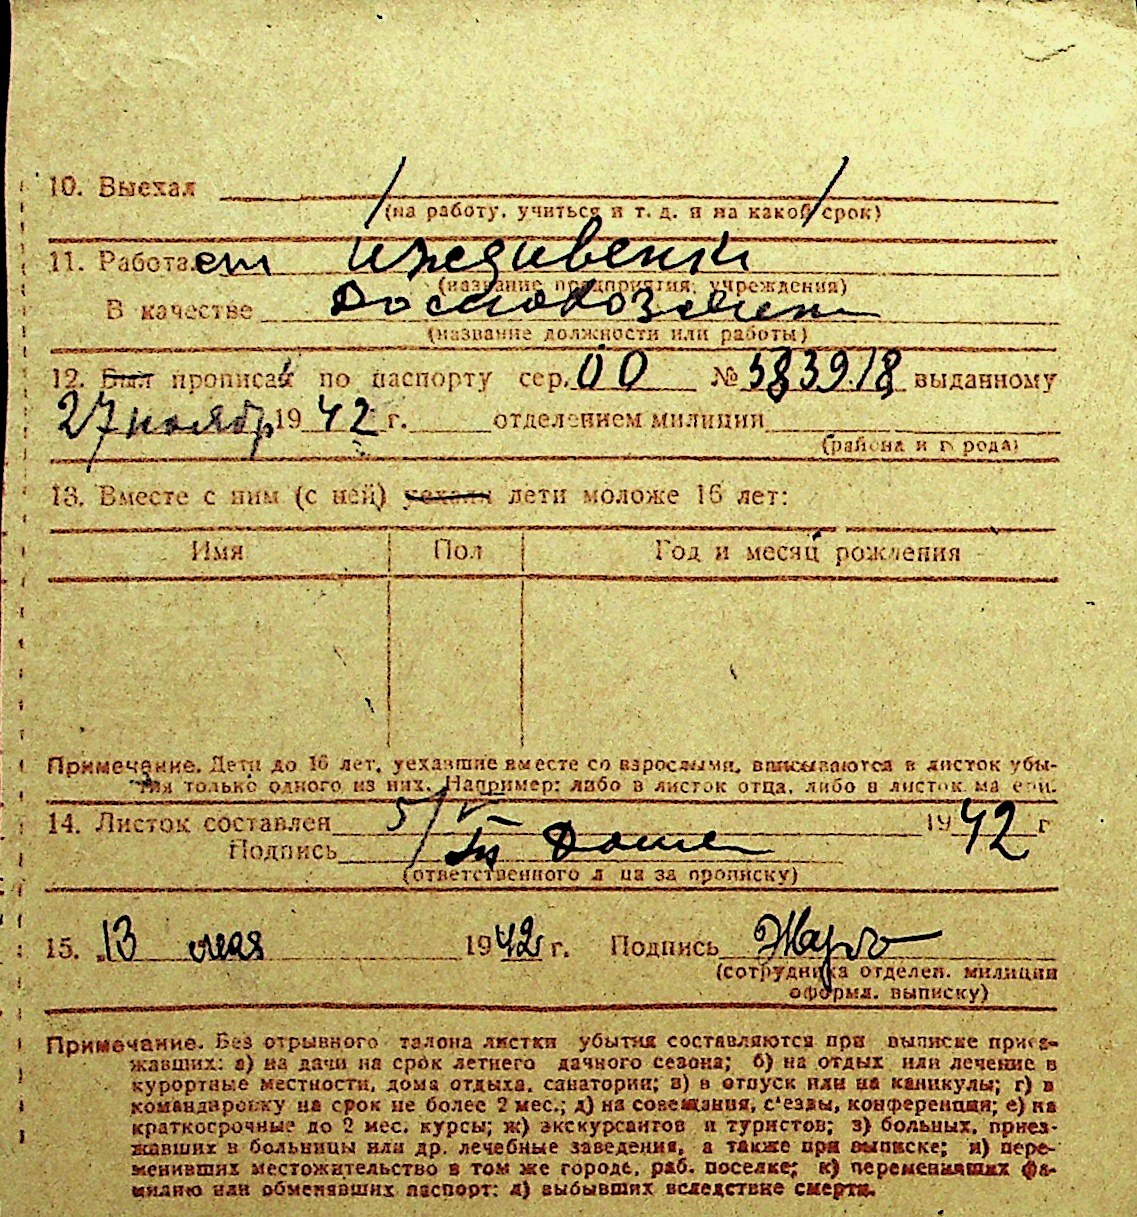 10. Выехал
(на работу, учиться и т. д. и на какой срок)
11. Работает иждивенка
(название предприятия, учреждения)
В качестве
(название должности или работы)
12. Был прописан по паспорту сер. 00 № 583918 выданному
27 ноябр 1942 г. отделением милиции
(района и города)
13. Вместе с ним (с ней) уехали дети моложе 16 лет:
Имя Пол Год и месяц рождения
Примечание. Дети до 16 лет, уехавшие вместе со взрослыми, вписываются в листок убы-
тия только одного из них. Например: либо в листок отца, либо в листок матери.
14. Листок составлен 5/V 1942 г
Подпись
(ответственного лица за прописку)
15. 13 мая 1942 г. Подпись
(сотрудника отделен. милиции
оформл. выписку)
Примечание. Без отрывного талона листки убытия составляются при выписке приез-
жавших: а) на дачи на срок летнего дачного сезона; б) на отдых или лечение в
курортные местности, дома отдыха, санатории; в) в отпуск или на каникулы; г) в
командировку на срок не более 2 мес.; д) на совещания, с'езды, конференции; е) на
краткосрочные до 2 мес. курсы; ж) экскурсантов и туристов; з) больных, приез-
жавших в больницы или др. лечебные заведения, а также при выписке; и) пере-
менивших местожительство в том же городе, раб. поселке; к) переменивших фа-
милию или обменявших паспорт; л) выбывших вследствие смерти.